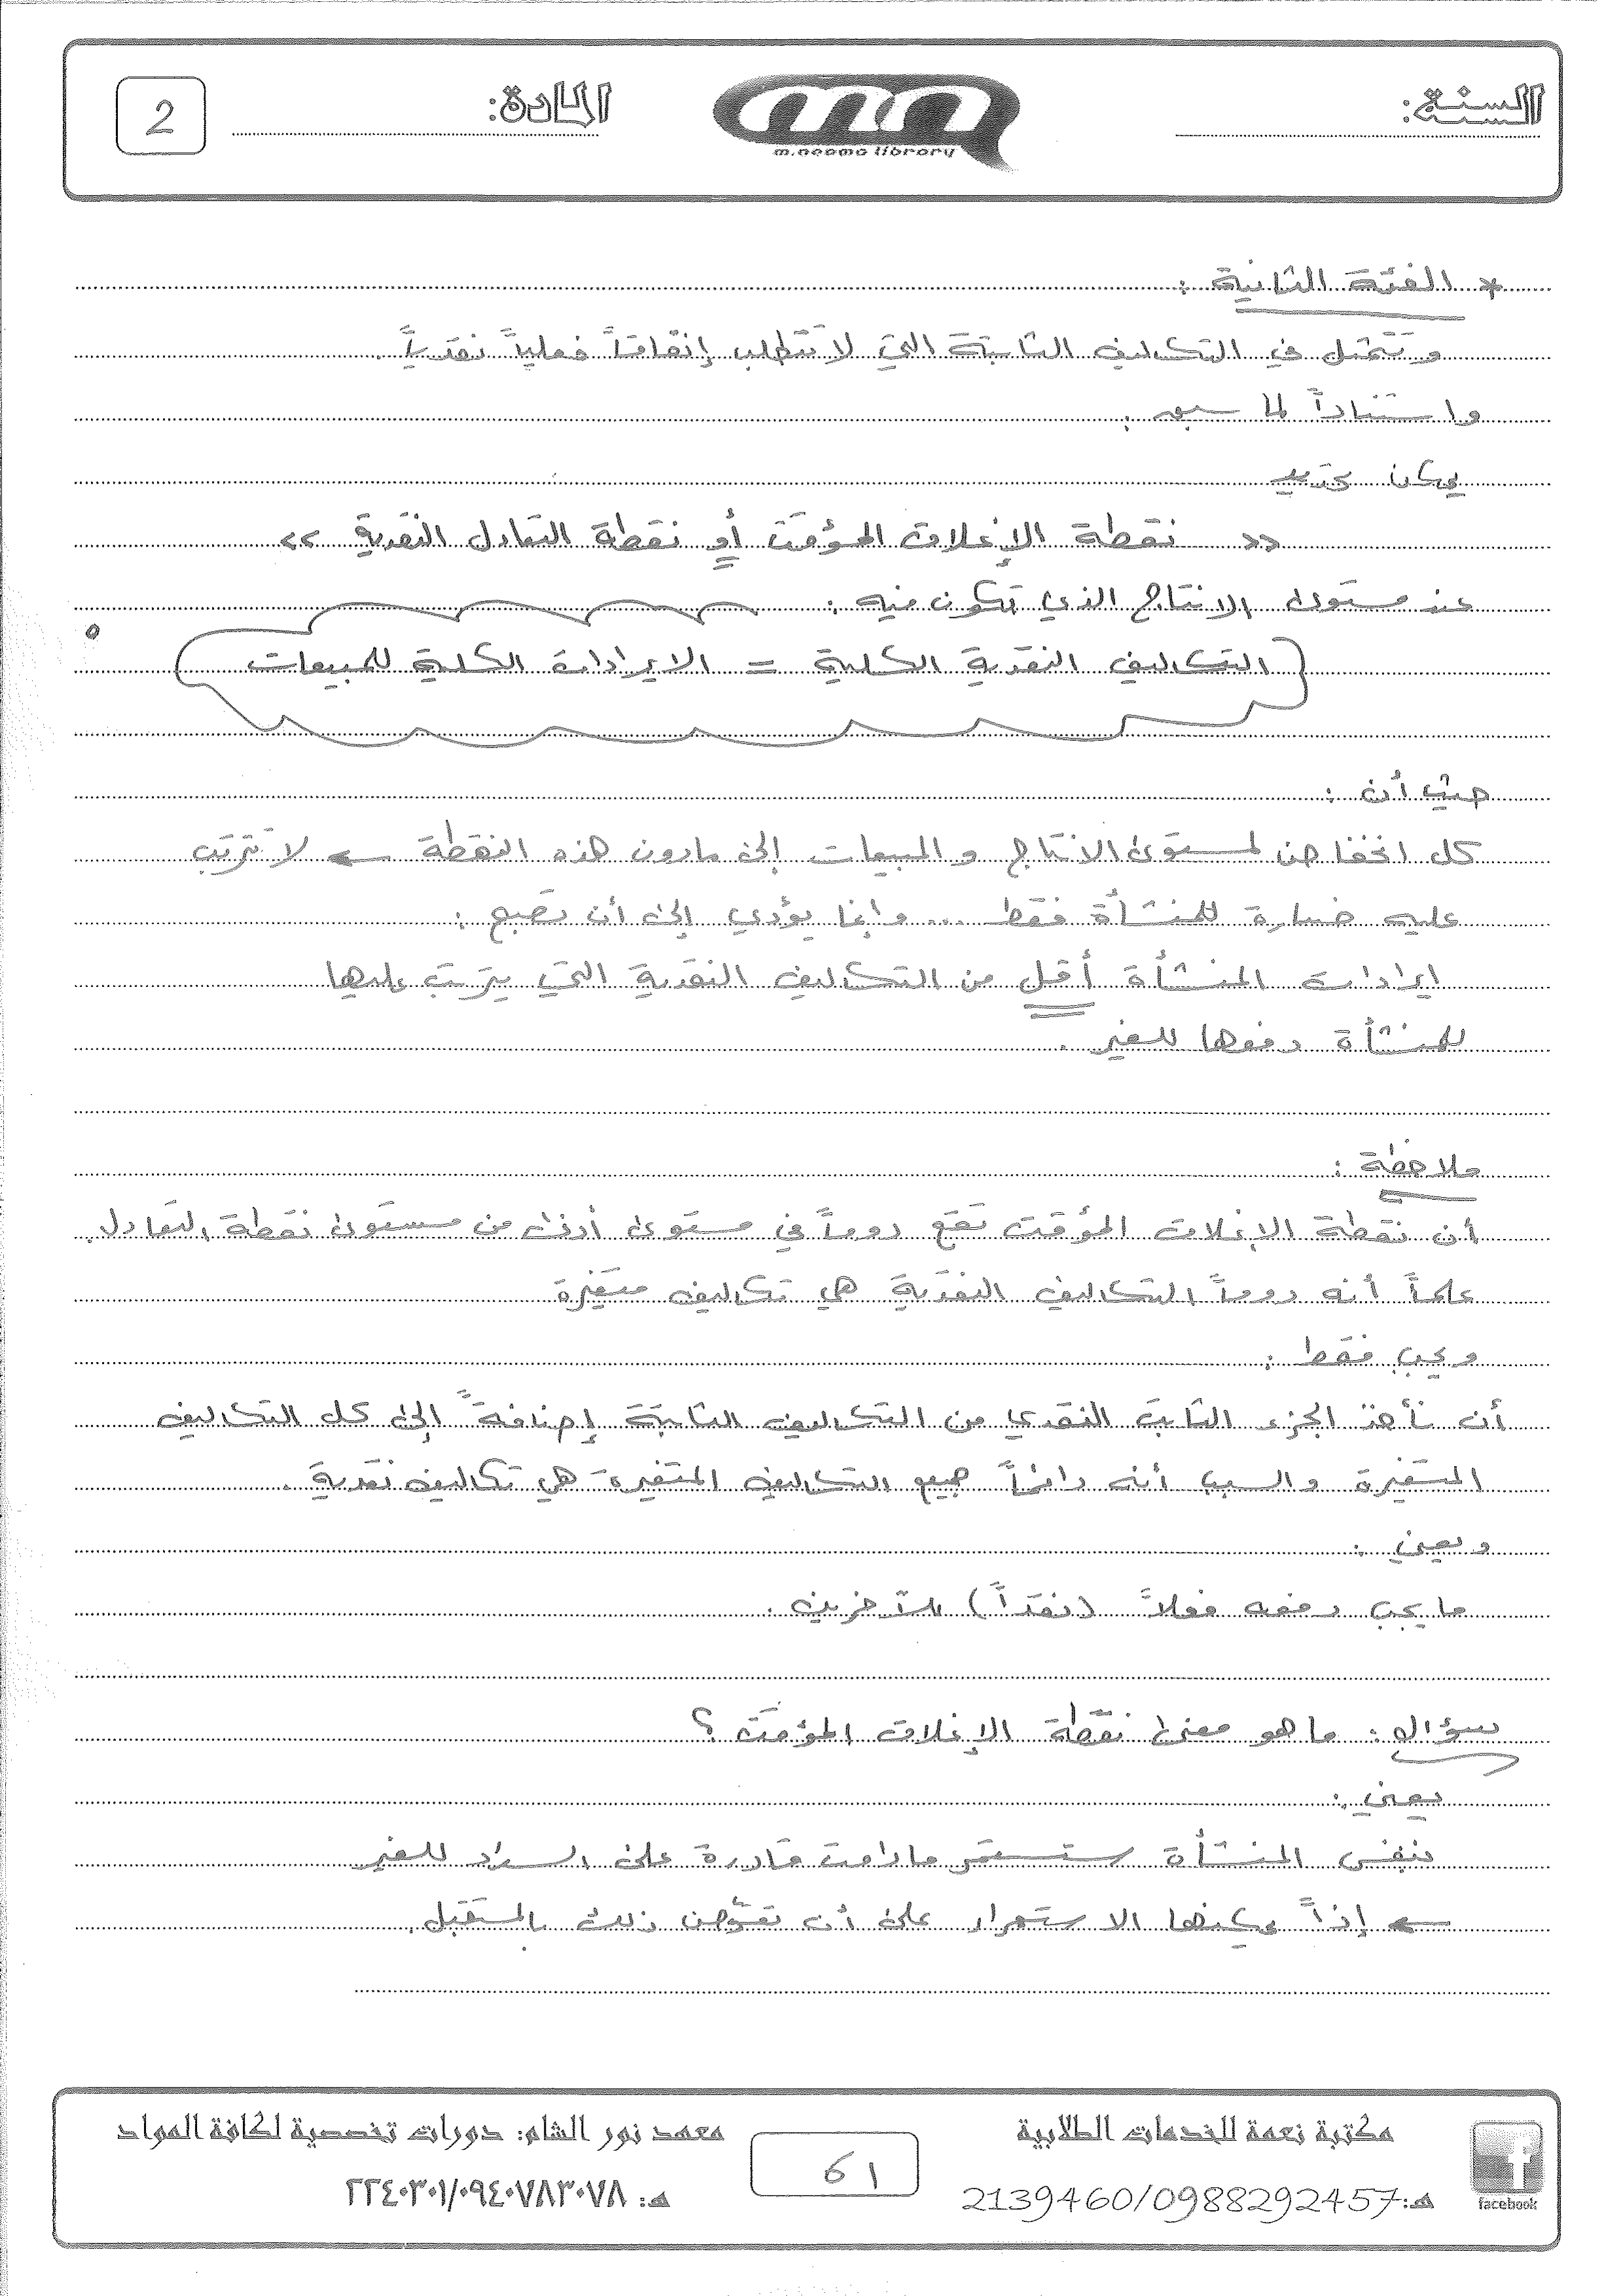 السنة:
m.neama library
المادة:
2
* الفئة الثانية :
و تتمثل في التكاليف الثابتة التي لا تتطلب إنفاقاً فعلياً نقدياً .
واستناداً لما سبق :
يمكن تحديد
>> نقطة الإغلاق المؤقت أو نقطة التعادل النقدية <<
عند مستوى الانتاج الذي تكون فيه :
التكاليف النقدية الكلية = الايرادات الكلية للمبيعات
حيث أن :
كل انخفاض لمستوى الانتاج و المبيعات إلى مادون هذه النقطة ← لا تترتب
عليه خسارة للمنشأة فقط ... وإنما يؤدي إلى أن تصبح :
ايرادات المنشأة أقل من التكاليف النقدية التي يترتب عليها
للمنشأة دفعها للغير .
ملاحظة :
أن نقطة الإغلاق المؤقت تقع دوماً في مستوى أدنى من مستوى نقطة التعادل .
علماً أنه دوماً التكاليف النقدية هي تكاليف متغيرة
ويجب فقط :
أن نأخذ الجزء الثابت النقدي من التكاليف الثابتة إضافةً إلى كل التكاليف
المتغيرة والسبب أنه دائماً جميع التكاليف المتغيرة هي تكاليف نقدية .
ويعني :
ما يجب دفعه فعلاً (نقداً) للآخرين .
سؤال : ما هو معنى نقطة الإغلاق المؤقت ؟
يعني :
بنفس المنشأة ستستمر مادامت قادرة على السداد للغير
← إذاً يمكنها الاستمرار على أن تعوّض ذلك بالمستقبل .
مكتبة نعمة للخدمات الطلابية
هـ: 2139460/0988292457
facebook
61
معهد نور الشام: دورات تخصصية لكافة المواد
هـ: ٢٢٤٠٣٠١/٠٩٤٠٧٨٣٠٧٨